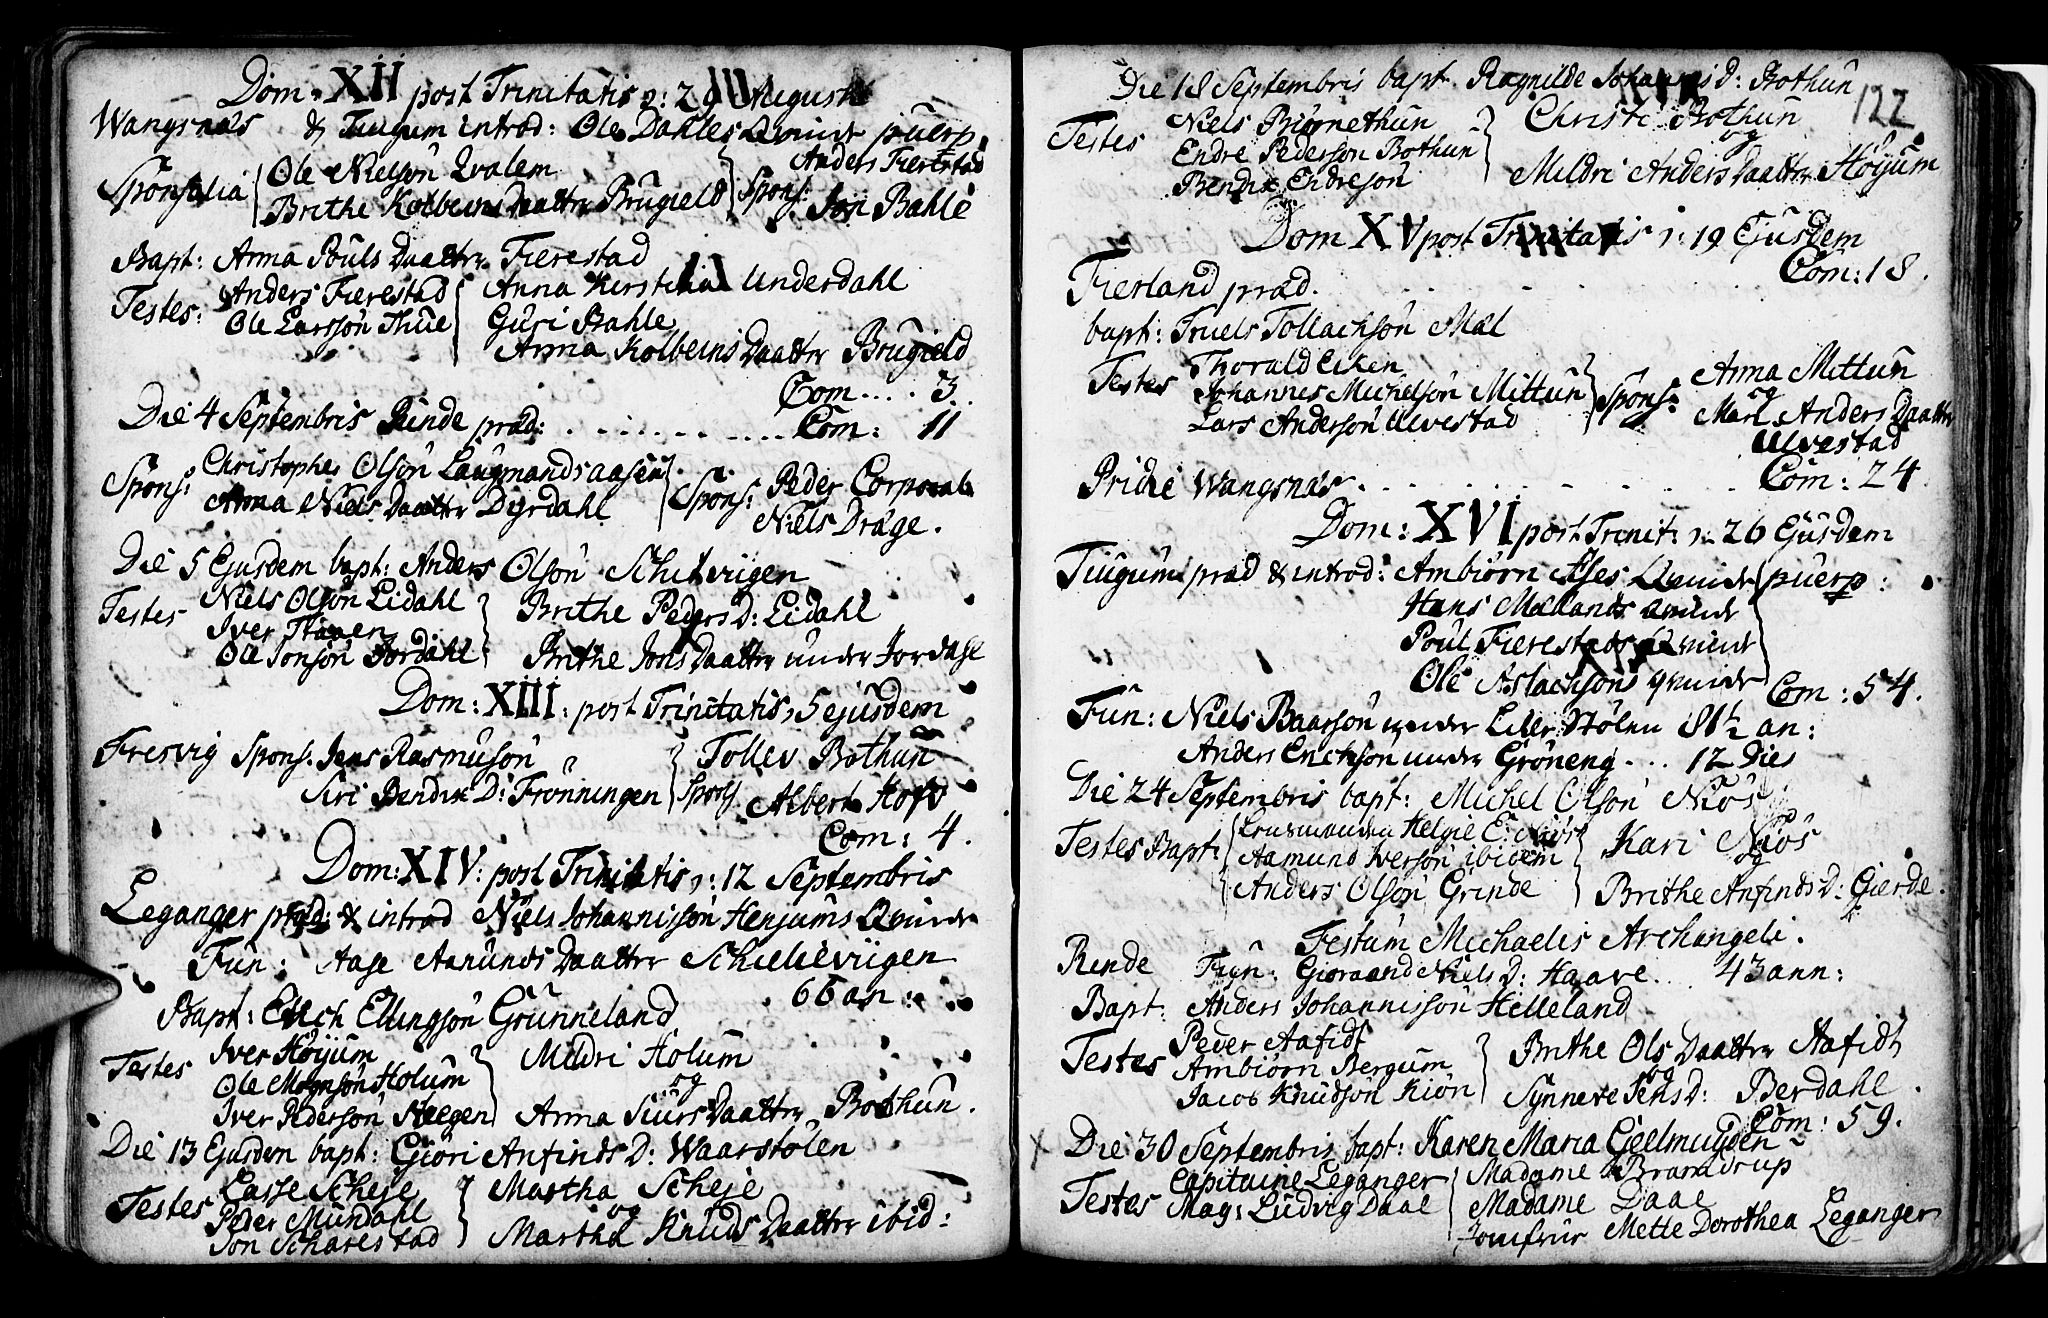 Dom: XII post Trinitatis, 29 Augusti
Wangsnæs & Tiugum introd: Ole Dahles Qvinde puerp.
Sponsalia Ole Nielsön Qvalem
Brithe Kolbeins Daatter Brugield Spons: Anders Fierestad
Jon Bahle
Bapt: Anna Pouls Daatter Fierestad
Testes: Anders Fierestad
Ole Larssön Thue
Anna Kirstina Underdahl
Guri Bahle
Anna Kolbeins Daatter Brugield
Com .... 3.
Die 4 Septembris Rinde præd: . . . . . . . Com: 11
Spons: Christopher Olsön Laugmandsaasen
Anna Niels Daatter Dyrdahl
Spons: Peder Corporal
Niels Drage.
Die 5 Ejusdem bapt: Anders Olsön
Testes Niels Olsön Eidahl
Iver
Ole Jonsön Jordahl
Brithe Peders D: Eidahl
Brithe Jons Daatter under Jordahl
Dom: XIII: post Trinitatis, 5 ejusdem
Fresvig Spons: Jens Rasmusön
Siri Bendix D: Frönningen
Tollev Bothun
Spons Albert Hof
Com: 4.
Dom: XIV: post Trinitatis, 12 Septembris
Leganger præd: & introd Niels Johannissön Henjums Qvinde
Fun: Aase Aamunds Daatter
66 an:
Bapt: Erich Ellingsön Grunneland
Testes Iver Höyum
Ole Monsön Holum
Iver Pedersön Hegen
Mildri Holum
og
Anna Siurs Daatter Bothun.
Die 13 Ejusdem bapt: Giöri Anfinds D: Waarstölen
Testes Lasse Scheje
Peder Mundahl
Jon Scharestad
Martha Scheje
og
Martha Knuds Daatter ibid:
122
Die 18 Septembris bapt Ragnilde Johannis D: Bothun
Testes Niels
Endre Pedersön Bothun
Bendix Endresön
Christi Bothun
og
Mildri Anders Daatter Höyum
Dom XV post Trinitatis, 19 Ejusdem
Fierland præd. . . . . . Com: 18.
bapt: Truels Tollachsön Mæl
Testes Thorald Eken
Johannes Michelsön Mittun
Lars Andersön Ulvestad
Spons: Anna Mittun
og
Mari Anders Daatter
Ulvestad
Pridie Wangsnæs . . . . . . Com: 24
Dom: XVI post Trinit: 26 Ejusdem
Tiugum præd & introd: Ambiörn Ases Qvinde puerp:
Hans Mælands Qvinde
Poul Fierestads Qvinde
Ole Aslachsöns qvinde
Com: 54.
Fun: Niels Baarsön under Stölen 81½ an:
Anders Erichsön under Gröneng ... 12 Dies
Die 24 Septembris bapt: Michel Olsön Niös
Testes Bapt: Helgie E: Niös
Aamund Iversön ibidem
Anders Olsön Grinde
Kari Niös
og
Brithe Anfinds D: Gierde.
Festum Michaelis Archangeli.
Rinde Fun: Niels D: Haave .. 43 ann:
Bapt: Anders Johannissön Helleland
Testes Peder Aafidt
Ambiörn Bergum
Jacob Knudsön Kiön
Brithe Ols Daatter Aafidt
og
Synneve Jens D: Berdahl.
Com: 59.
Die 30 Septembris bapt: Karen Maria Gjelmuyden
Testes Capitaine Leganger
Mag: Ludvig Daae
Madame Bramdrup
Madame Daae
Jomfrue Mette Dorothea Leganger